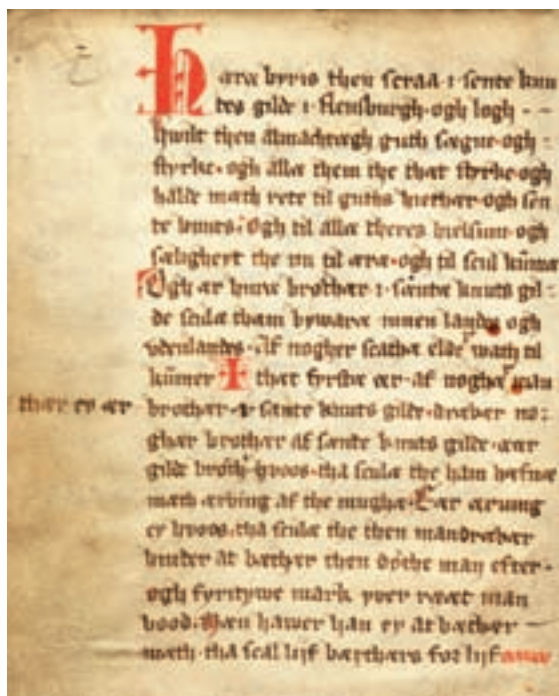 Hæræ byris then scraa i sente knu
tes gilde i flensburgh ogh logh
hwilt then almachtægh guth sægne ogh
styrke ogh allæ them the thæt styrke ogh
halde mæth rete til guths hethær ogh sen
te knuts. Ogh til allæ theres helsum ogh
sælighert the nu til æræ ogh til scul kumæ
Ogh ær huræ brothær i sæntæ knuts gil-
de sculæ tham bywaræ innen landæ ogh
utenlandes. Af nogher scathæ eldær wath til
kumer I thæt fyrstæ ær. af noghær man
thær ey ær brothær i sænte knuts gilde. dræber no-
ghær brothær af sænte knuts gilde. æær
gilde broth hwos. tha sculæ the ham hæfnæ
mæth ærving af the mughæ. Eær ærwing
ey hwos. tha sculæ the then mandræbær
binder at bæther then døthe man efter.
ogh fyrtywe mark yver rææt man
bood. Hæn hawer han ey at bæthær
mæth. tha scal liif bæthæs for liif